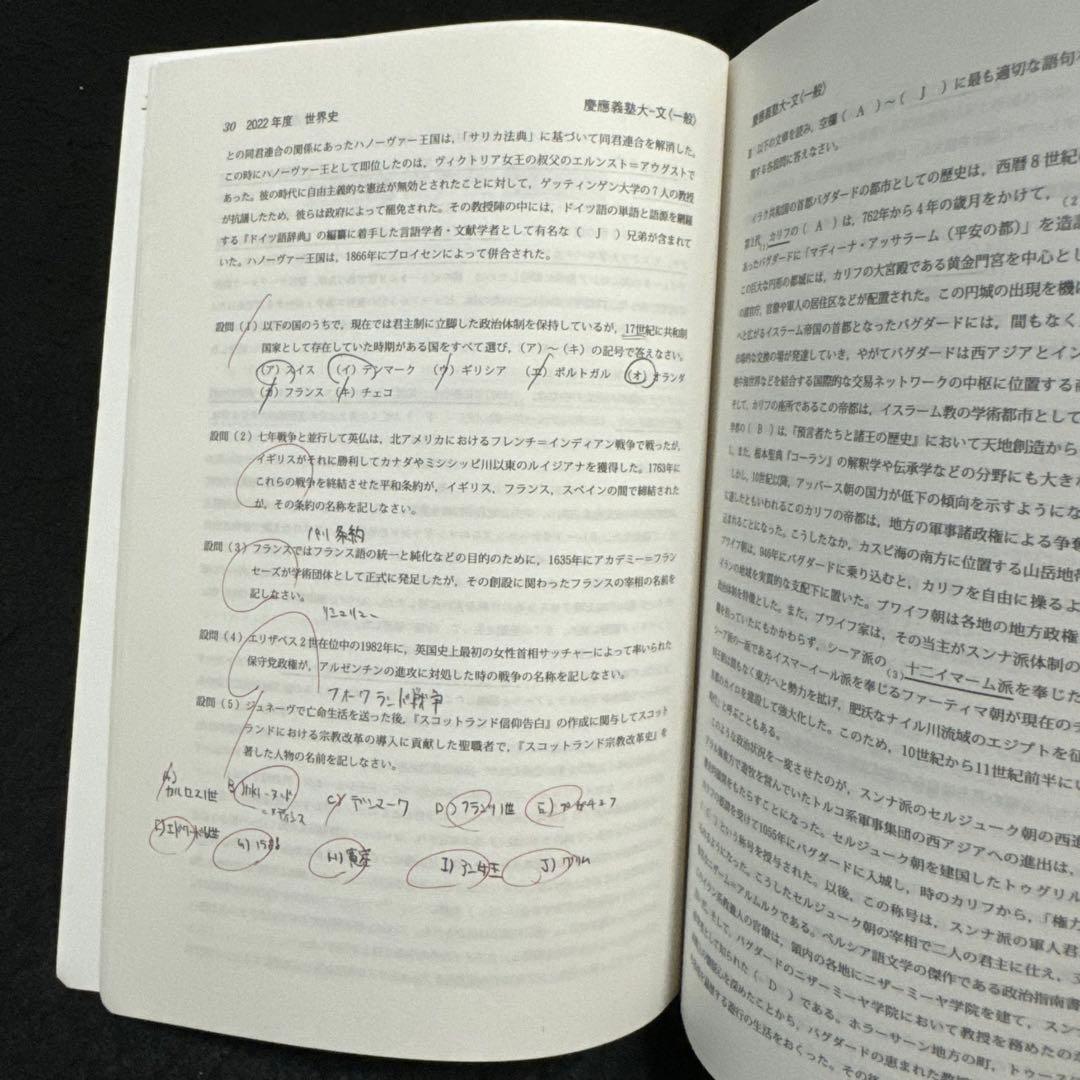 30 2022年度 世界史
慶應義塾大-文(一般)
との同君連合の関係にあったハノーヴァー王国は,「サリカ法典」に基づいて同君連合を解消した。
この時にハノーヴァー王として即位したのは,ヴィクトリア女王の叔父のエルンスト=アウグストで
あった。彼の時代に自由主義的な憲法が無効とされたことに対して,ゲッティンゲン大学の7人の教授
が抗議したため,彼らは政府によって罷免された。その教授陣の中には,ドイツ語の単語と語源を網羅
する『ドイツ語辞典』の編纂に着手した言語学者・文献学者として有名な( J )兄弟が含まれて
いた。ハノーヴァー王国は,1866年にプロイセンによって併合された。
設問(1)以下の国のうちで,現在では君主制に立脚した政治体制を保持しているが,17世紀に共和制
国家として存在していた時期がある国をすべて選び,(ア)~(キ)の記号で答えなさい。
(ア)スイス (イ)デンマーク (ウ)ギリシア (エ)ポルトガル (オ)オランダ
(カ)フランス (キ)チェコ
設問(2)七年戦争と並行して英仏は,北アメリカにおけるフレンチ=インディアン戦争で戦ったが,
イギリスがそれに勝利してカナダやミシシッピ川以東のルイジアナを獲得した。1763年に
これらの戦争を終結させた平和条約が,イギリス,フランス,スペインの間で締結された
が,その条約の名称を記しなさい。
パリ条約
設問(3)フランスではフランス語の統一と純化などの目的のために,1635年にアカデミー=フラン
セーズが学術団体として正式に発足したが,その創設に関わったフランスの宰相の名前を
記しなさい。
リシュリュー
設問(4)エリザベス2世在位中の1982年に,英国史上最初の女性首相サッチャーによって率いられた
保守党政権が,アルゼンチンの進攻に対処した時の戦争の名称を記しなさい。
フォークランド戦争
設問(5)ジュネーヴで亡命生活を送った後,『スコットランド信仰告白』の作成に関与してスコット
ランドにおける宗教改革の導入に貢献した聖職者で,『スコットランド宗教改革史』を
著した人物の名前を記しなさい。
A)カルロス1世 B) C)デンマーク D)フランソワ1世 E)
F)エドワード6世 G) H) I)アン女王 J)グリム
慶應義塾大-文(一般)
Ⅱ 以下の文章を読み,空欄( A )~( J )に最も適切な語句を
関する各設問に答えなさい。
イラク共和国の首都バグダードの都市としての歴史は,西暦8世紀
第2代カリフの( A )は,762年から4年の歳月をかけて,
あったバグダードに「マディーナ・アッサラーム(平安の都)」を造
この巨大な円形の都城には,カリフの大宮殿である黄金門宮を中心とし
の諸官庁,官僚や軍人の居住区などが配置された。この円城の出現を機に
へと広がるイスラーム帝国の首都となったバグダードには,間もなく
な交換の場が発達していき,やがてバグダードは西アジアとイン
地中海世界などを結合する国際的な交易ネットワークの中枢に位置する
そして,カリフの座所であるこの帝都は,イスラーム教の学術都市として
学者の( B )は,『預言者たちと諸王の歴史』において天地創造から
また,根本聖典『コーラン』の解釈学や伝承学などの分野にも大き
しかし,10世紀以降,アッバース朝の国力が低下の傾向を示すようにな
に達したともいわれるこのカリフの帝都は,地方の軍事諸政権による争奪
込まれることになった。こうしたなか,カスピ海の南方に位置する山岳地帯
ブワイフ朝は,946年にバグダードに乗り込むと,カリフを自由に操るよ
イランの地域を実質的な支配下に置いた。ブワイフ朝は各地の地方政権
政治体制を特徴とした。また,ブワイフ家は,その当主がスンナ派体制の
を担っていたにもかかわらず,シーア派の(3)十二イマーム派を奉じた
シーア派の一派であるイスマーイール派を奉じるファーティマ朝が現在のチ
間もなく東方へと勢力を拡げ,肥沃なナイル川流域のエジプトを征
のカイロを建設して強大化した。このため,10世紀から11世紀前半に
と呼ぶこともある。
このような政治状況を一変させたのが,スンナ派のセルジューク朝の西進
で遊牧を営んでいたトルコ系軍事集団の西アジアへの進出は,
をもたらすことになった。セルジューク朝を建国したトゥグリル
を受けて1055年にバグダードに入城し,時のカリフから,「権力
という称号を授与された。以後,この称号は,スンナ派の軍人君
ようになった。こうしたセルジューク朝の宰相で二人の君主に仕え,
ニザーム=アルムルクである。ペルシア語文学の傑作である政治指南書
の官僚は,領内の各地にニザーミーヤ学院を建て,スン
バグダードのニザーミーヤ学院において教授を務めた
として知られた( D )である。ホラーサーン地方の町,トゥース
を深めたことから,バグダードの恵まれた教授
する遊行の生活をおくった。その後